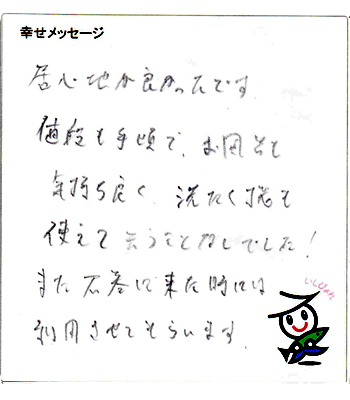 幸せメッセージ
居心地が良かったです
値段も手頃で、お風呂も
気持ち良く 洗たく機も
使えて 言うことなしでした!
また石巻に来た時には
利用させてもらいます